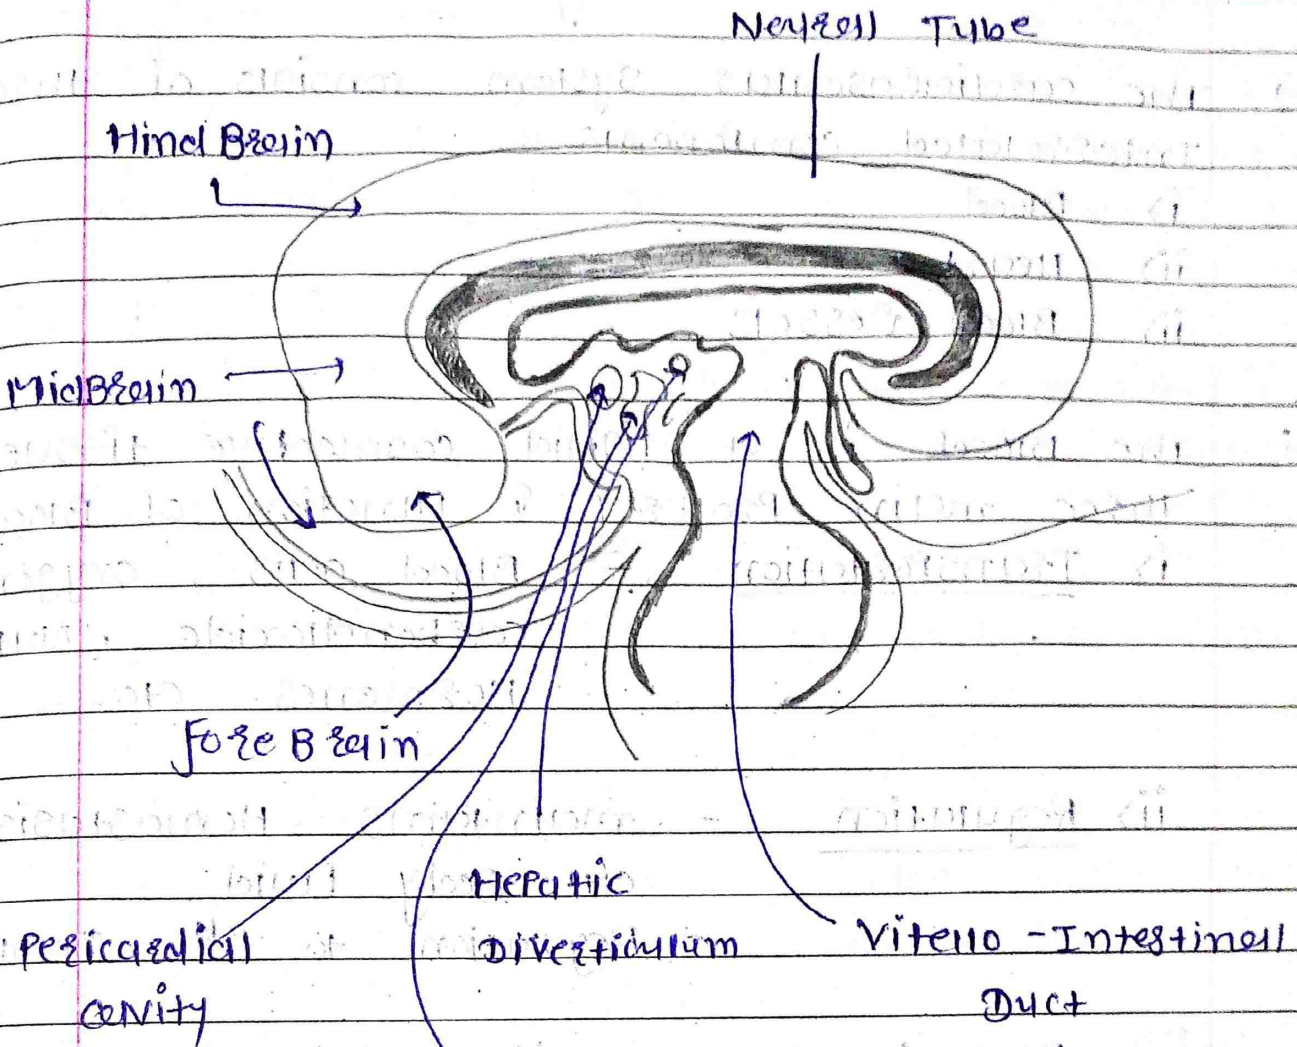 Neural Tube
Hind Brain
MidBrain
fore Brain
Hepatic
Diverticulum
Pericardial
cavity
Vitello - Intestinal
Duct